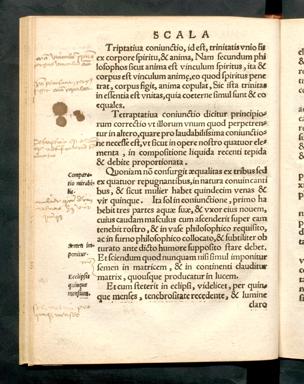 SCALA
Triptatiua coniunctio, id est, trinitatis vnio fit
ex corpore spiritu, & anima, Nam secundum phi
losophos sicut anima est vinculum spiritus, ita &
corpus est vinculum animę, eo quod spiritus pene
trat, corpus figit, anima copulat, Sic ista trinitas
in essentia est vnitas, quia coeternę simul sunt & co
equales.
Tetraptatiua coniunctio dicitur principio-
rum correctio vt illorum vnum quod perpetren-
tur in altero, quare pro laudabilissima coniunctio-
ne necesse est, vt sicut in opere nostro quatuor ele-
menta, in compositione liquida recenti tepida
& debite proportionata.
Compara-
tio mirabi-
lis.
Quoniam nō consurgit æqualitas ex tribus sed
ex quatuor repugnantibus, in natura conuincanti
bus, & sicut mulier habet quindecim venas &
vir quinque. Ita sol in coniunctione, primo ha
bebit tres partes aquæ suæ, & vxor eius nouem,
cuius caudam masculus cum ascenderit super eam
tenebit rostro, & in vase philosophico requisito,
ac in furno philosophico collocato, & subtiliter ob
turato ante dicto humore suppositio stare debet.
Semen im-
ponitur.
Et sciendum quod nunquam nisi simul imponitur
semen in matricem, & in continenti clauditur
matrix, quousque producatur in lucem.
Ecclipsis
quinque
mensium.
Et cum steterit in eclipsi, videlicet, per quin-
que menses, tenebrositate recedente, & lumine
clarq